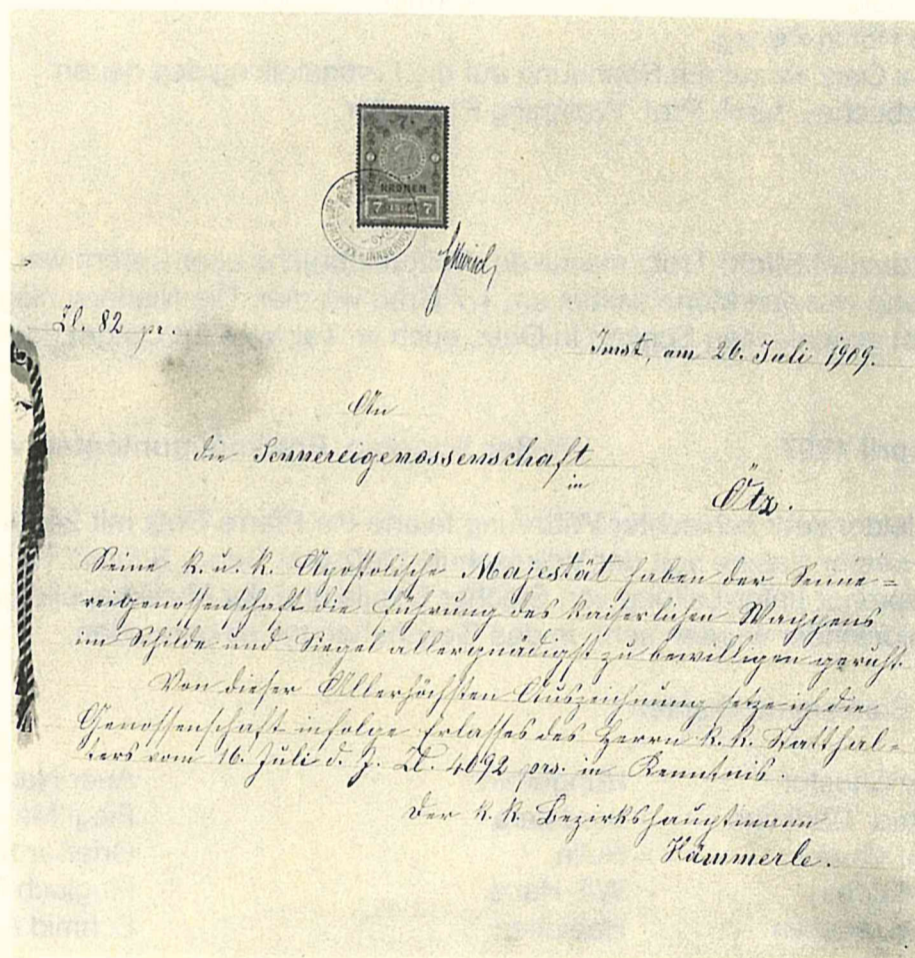 7
KRONEN
7 7
Zl. 82 pr.
Imst, am 26. Juli 1909.
An
die Sennereigenossenschaft
in
Ötz.
Seine k. u. k. Apostolische Majestät haben der Senne=
reigenossenschaft die Führung des kaiserlichen Wappens
im Schilde und Siegel allergnädigst zu bewilligen geruht.
Von dieser Allerhöchsten Auszeichnung setze ich die
Genossenschaft infolge Erlasses des Herrn k. k. Statthal=
ters vom 16. Juli d. J. Zl. 4092 prs. in Kenntnis.
Der k. k. Bezirkshauptmann
Hämmerle.